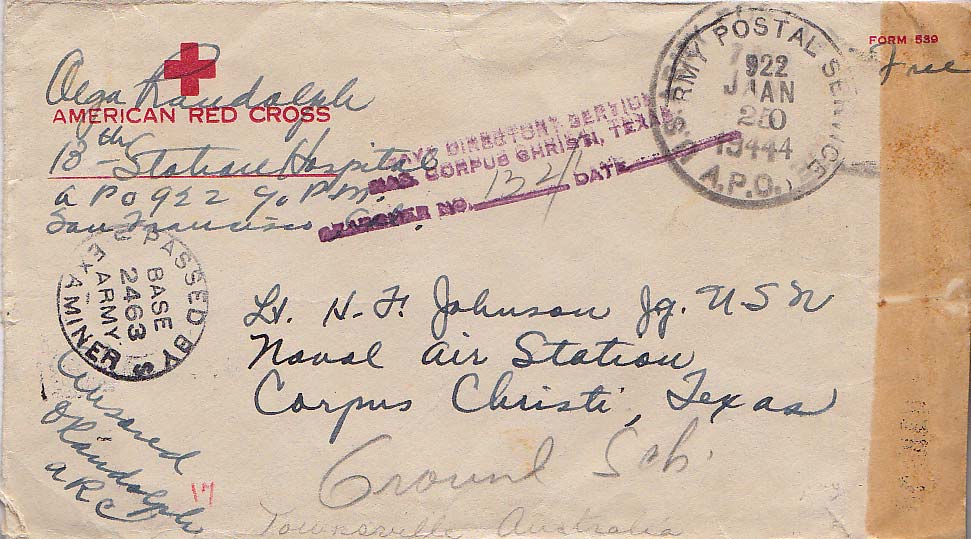 FORM 539
Free
Olga Randolph
AMERICAN RED CROSS
13th Station Hospital
APO 922 % P.M.
San Francisco Cal.
NAVY DIRECTORY SECTION
NAS. CORPUS CHRISTI, TEXAS
SEARCHER NO. 134 DATE
U.S. ARMY POSTAL SERVICE
922
JAN
20
1944
A.P.O.
PASSED BY
BASE
2463
ARMY
EXAMINER
Lt. H. F. Johnson Jg. USN
Naval Air Station
Corpus Christi, Texas
Censored
O Randolph
ARC
17
Ground Sch.
Townsville Australia